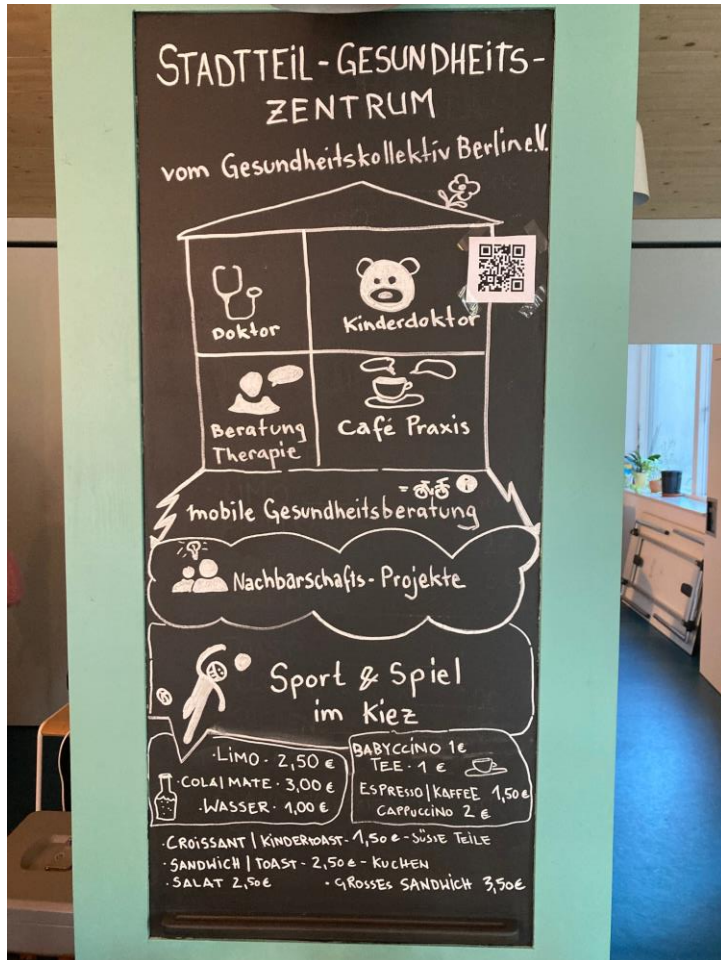 STADTTEIL-GESUNDHEITS-
ZENTRUM
vom Gesundheitskollektiv Berlin e.V.
Doktor
Kinderdoktor
Beratung
Therapie
Café Praxis
mobile Gesundheitsberatung
Nachbarschafts-Projekte
Sport & Spiel
im Kiez
·LIMO· 2,50 €
·COLA|MATE· 3,00 €
·WASSER· 1,00 €
BABYCCINO 1€
TEE· 1 €
ESPRESSO|KAFFEE 1,50€
CAPPUCCINO 2 €
·CROISSANT|KINDERTOAST-1,50€-SÜSSE TEILE
·SANDWICH|TOAST-2,50€-KUCHEN
·SALAT 2,50€
·GROSSES SANDWICH 3,50€